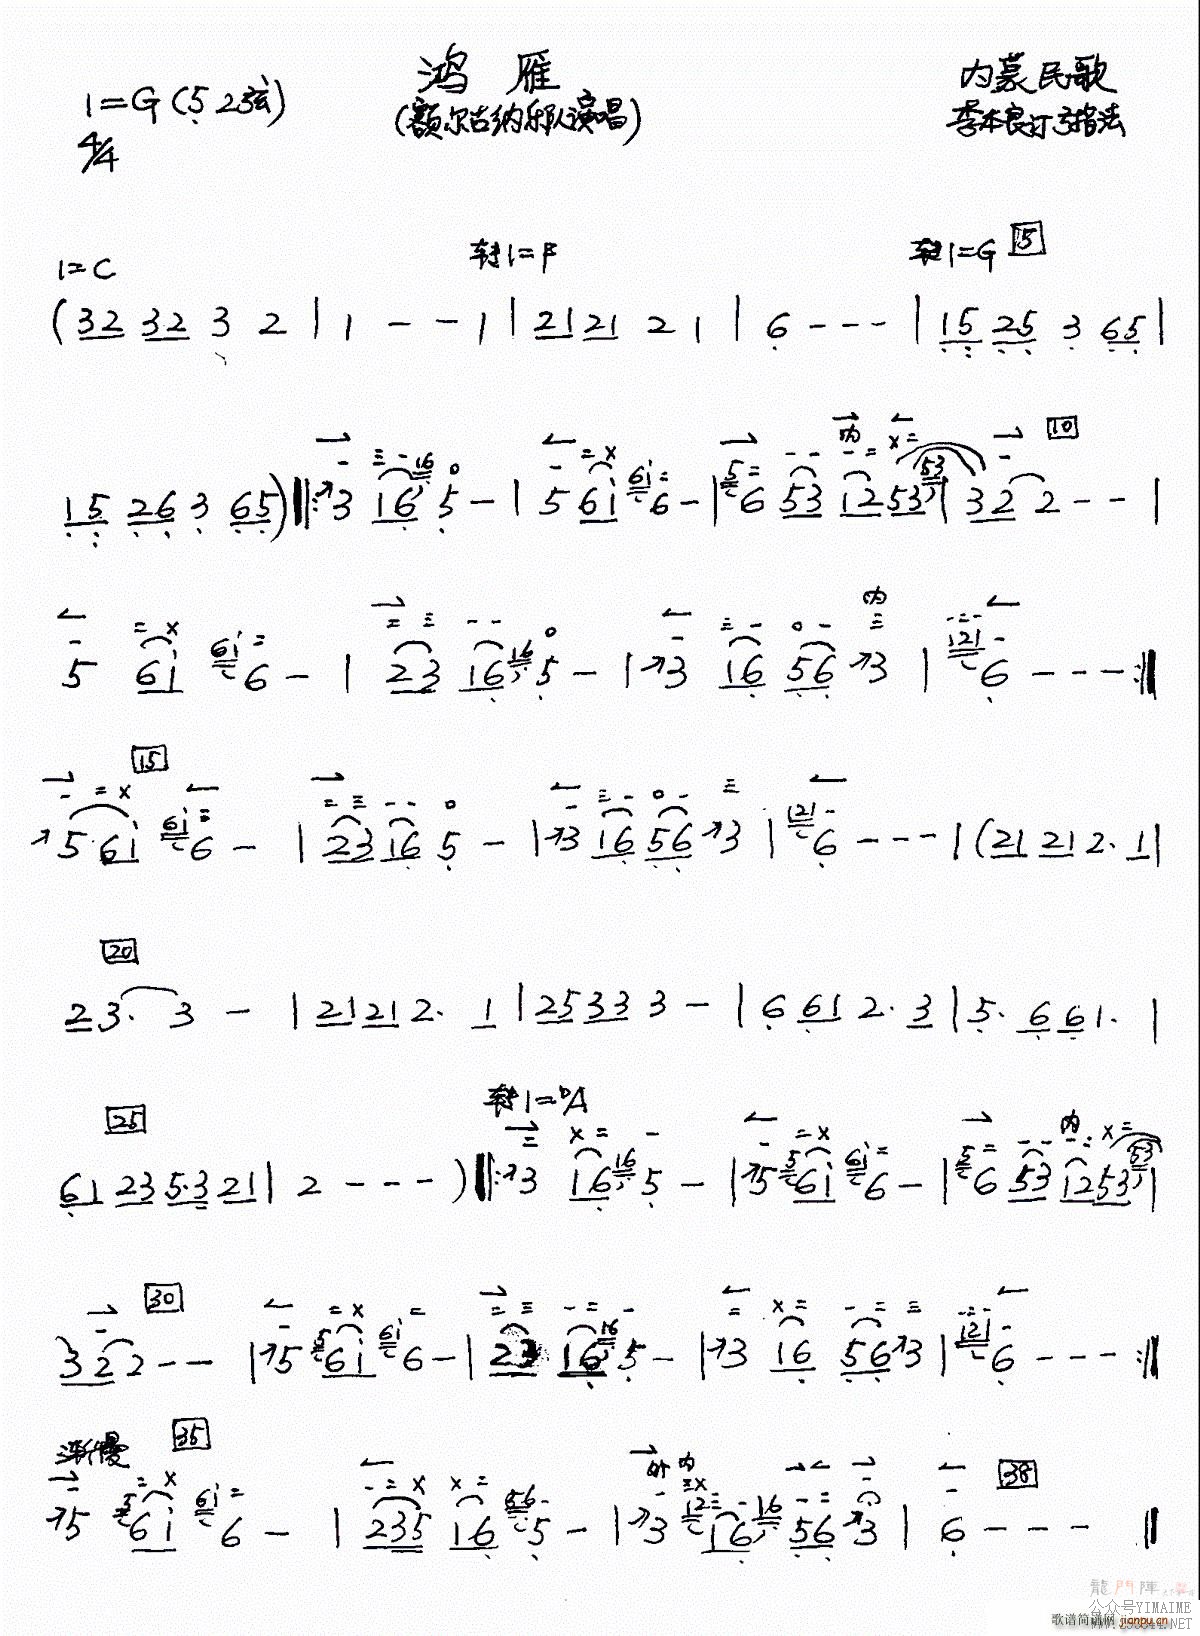 鸿雁
(额尔古纳乐队演唱)
内蒙民歌
李本良订弓指法
1=G(5 2弦)
4/4
1=C 转1=F 转1=G 5
(32 32 3 2 | 1 - - 1 | 21 21 2 1 | 6 - - - | 15 25 3 65 |
内 10
15 26 3 65) ‖: 3 16 5 - | 5 61 6 - | 6 53 12 53 | 32 2 - - |
内
5 61 6 - | 23 16 5 - | 3 16 56 3 | 6 - - - :‖
15
5 61 6 - | 23 16 5 - | 3 16 56 3 | 6 - - - | (21 21 2. 1 |
20
23. 3 - | 21 21 2. 1 | 25 33 3 - | 6 61 2. 3 | 5. 6 61. |
25 转1=bA
内
61 23 5.3 21 | 2 - - - ) ‖: 3 16 5 - | 5 61 6 - | 6 53 12 53 |
30
32 2 - - | 5 61 6 - | 23 16 5 - | 3 16 56 3 | 6 - - - :‖
渐慢 35 外 内 38
5 61 6 - | 235 16 5 - | 3 16 56 3 | 6 - - - ‖
龍門陣
公众号YIMAIME
歌谱简谱网 jianpu.cn